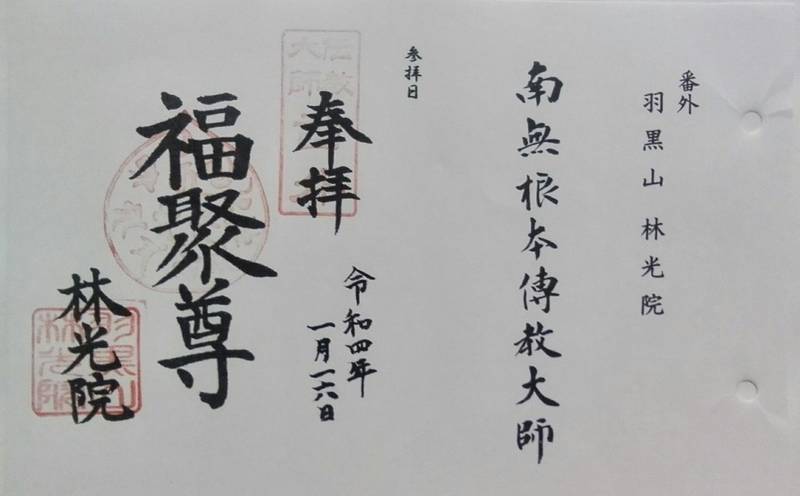 番外
羽黒山 林光院
南無根本傳教大師
参拝日
奉拝
令和四年
一月一六日
福聚尊
林光院
羽黒山
林光院